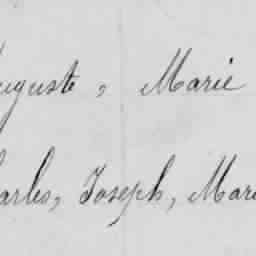 Auguste, Marie
Charles, Joseph, Mari